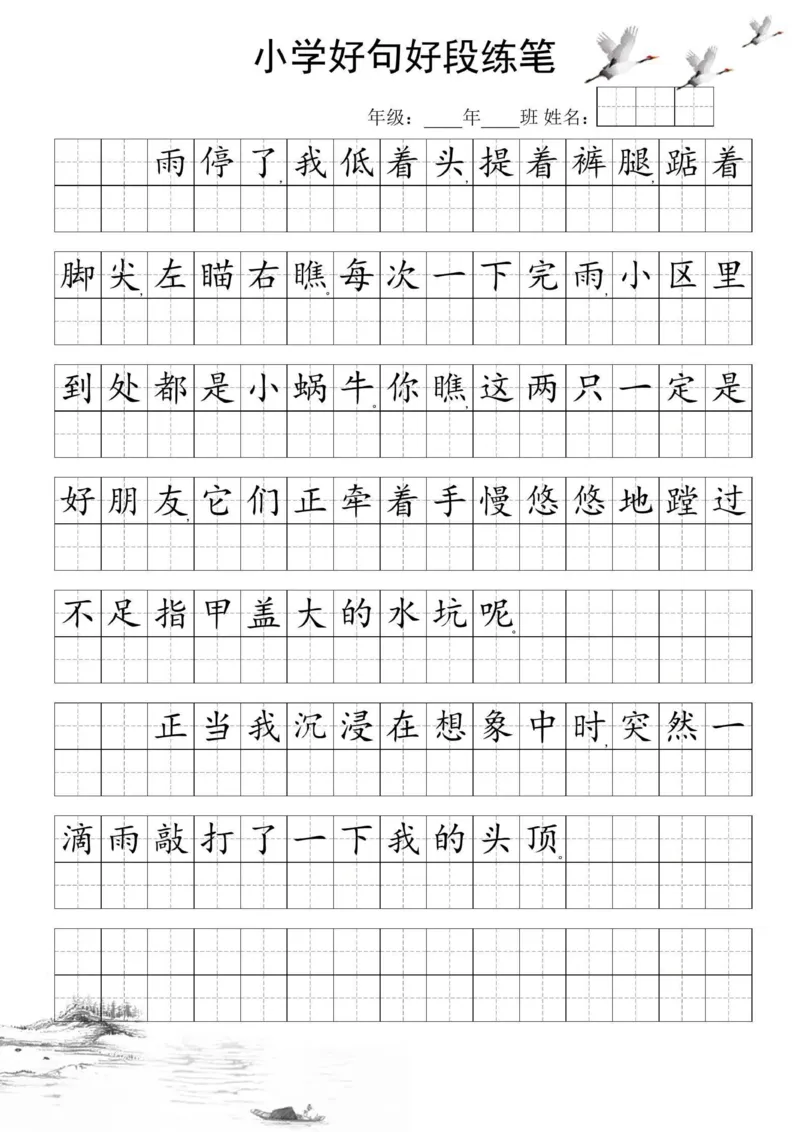 小学好句好段练笔
年级：____年____班 姓名：
雨停了，我低着头，提着裤腿，踮着
脚尖，左瞄右瞧。每次一下完雨，小区里
到处都是小蜗牛。你瞧，这两只一定是
好朋友，它们正牵着手慢悠悠地蹚过
不足指甲盖大的水坑呢。
正当我沉浸在想象中时，突然一
滴雨敲打了一下我的头顶。